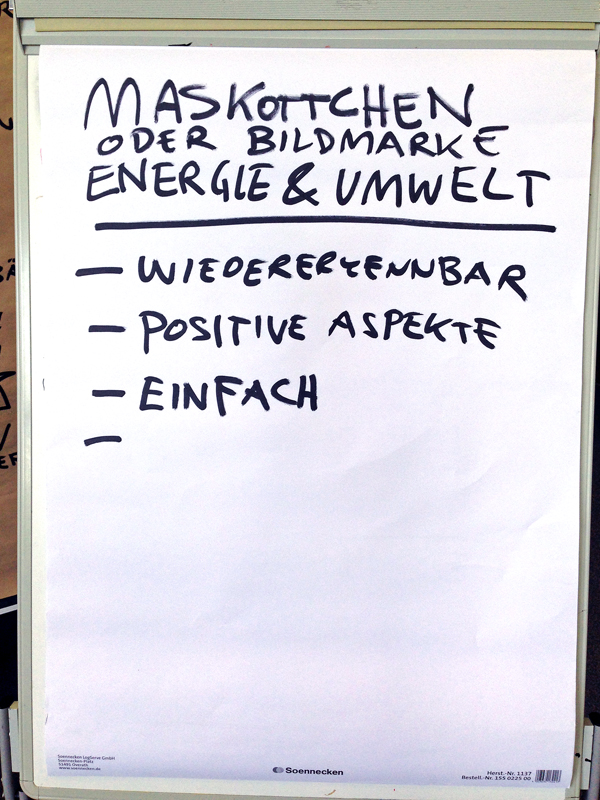 MASKOTTCHEN
ODER BILDMARKE
ENERGIE & UMWELT
— WIEDERERKENNBAR
— POSITIVE ASPEKTE
— EINFACH
—
Soennecken LogServe GmbH
Soennecken-Platz
51491 Overath
www.soennecken.de
Soennecken
Herst.-Nr. 1137
Bestell.-Nr. 155 0225 00